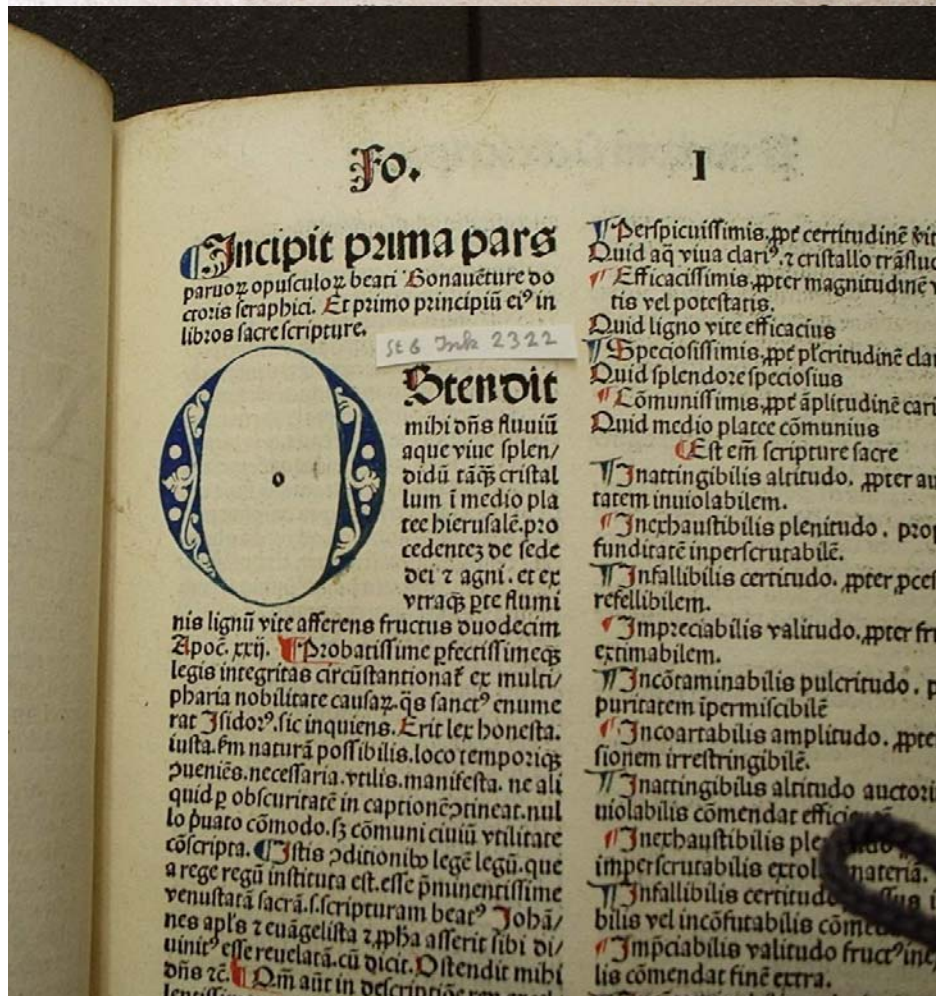 Fo. I
Incipit prima pars
paruoꝝ opusculoꝝ beati Bonauẽture do
ctoris seraphici. Et primo principiũ eiꝰ in
libros sacre scripture.
St G Ink 2322
OStendit
mihi dñs fluuiũ
aque viue splen/
didũ tãqꝫ cristal
lum ĩ medio pla
tee hierusalẽ.pro
cedenteꝫ de sede
dei ⁊ agni. et ex
vtraqꝫ ꝑte flumi
nis lignũ vite afferens fructus duodecim
Apoc̃. xxij. ¶Probatissime ꝑfectissimeqꝫ
legis integritas circũstantionat̃ ex multi/
pharia nobilitate causaꝝ. q̃s sanctꝰ enume
rat Isidorꝰ. sic inquiens. Erit lex honesta.
iusta. ẽm naturã possibilis. loco temporiqꝫ
ꝯueniẽs. necessaria. vtilis. manifesta. ne ali
quid ꝑ obscuritatẽ in captionẽ ꝯtineat. nul
lo p̃uato cõmodo. sꝫ cõmuni ciuiũ vtilitate
cõscripta. ¶Istis ꝯditionibꝰ legẽ legũ. que
a rege regũ instituta est. esse p̃minentissime
venustatã sacrã. s. scripturam beatꝰ Johã/
nes apl's ⁊ euãgelista ⁊ ꝓpha asserit sibi di/
uinitꝰ esse reuelatã. cũ dicit. Ostendit mihi
dñs ⁊c̃. ¶Qm̃ aũt in descriptiõe
¶Perspicuissimis. ꝓpt̃ certitudinẽ
Quid aq̃ viua clariꝰ. ⁊ cristallo
¶Efficacissimis. ꝓpter magnitudinẽ
tis vel potestatis.
Quid ligno vite efficacius
¶Speciosissimis. ꝓpt̃ pl'critudinẽ
Quid splendore speciosius
¶Cõmunissimis. ꝓpt̃ ãplitudinẽ
Quid medio platee cõmunius
¶Est em̃ scripture sacre
¶Inattingibilis altitudo. ꝓpter
tatem inuiolabilem.
¶Inexhaustibilis plenitudo.
funditatẽ inperscrutabilẽ.
¶Infallibilis certitudo. ꝓpter
refellibilem.
¶Impreciabilis valitudo. ꝓpter
extimabilem.
¶Incõtaminabilis pulcritudo.
puritatem ĩpermiscibilẽ
¶Incoartabilis amplitudo.
sionem irrestringibilẽ.
¶Inattingibilis altitudo
uiolabilis cõmendat
¶Inexhaustibilis
imperscrutabilis materiã.
¶Infallibilis
bilis vel incõfutabilis
¶Imp̃ciabilis valitudo fructꝰ
lis cõmendat finẽ extra.